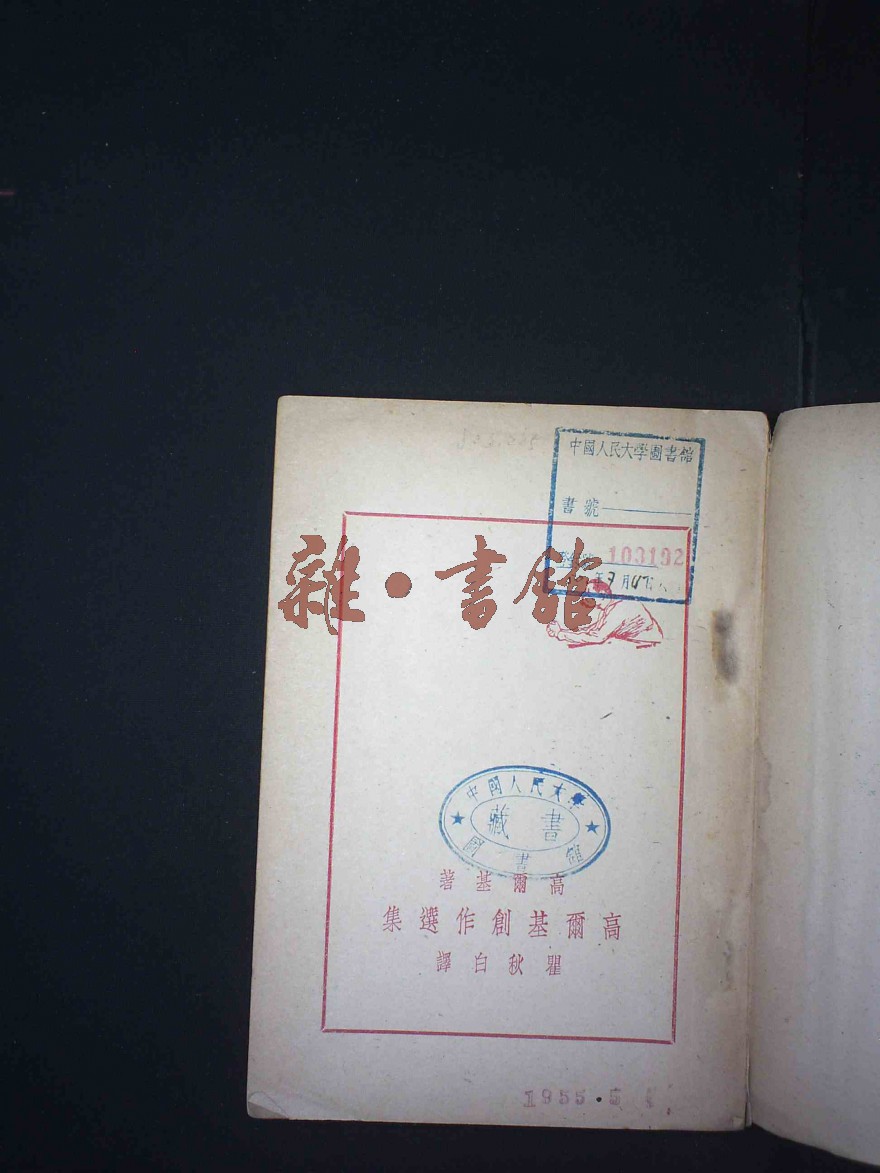 中國人民大學圖書館
書號
103192
月
雜·書館
中國人民大學
藏書
圖書館
高爾基著
高爾基創作選集
瞿秋白譯
1955·5